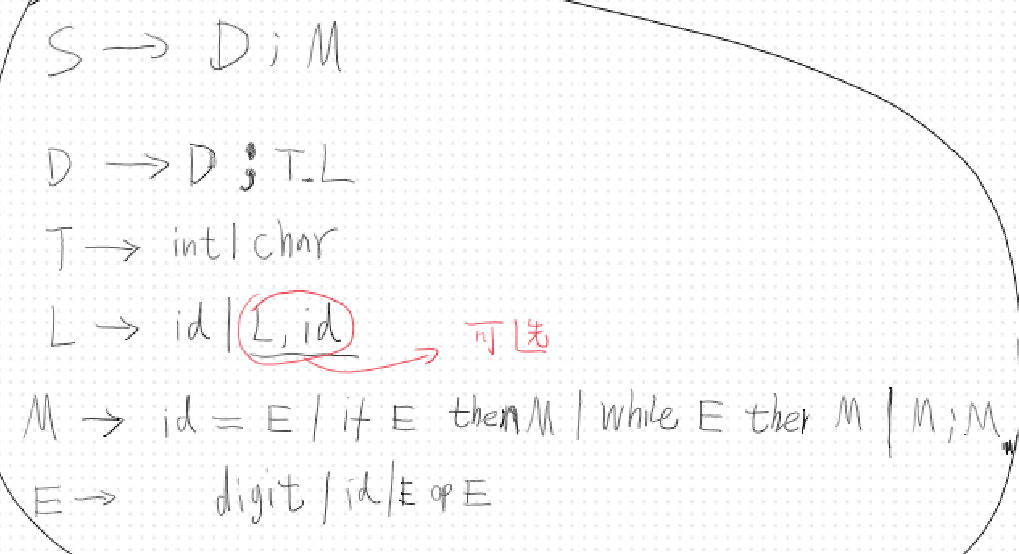 S → D ; M
D → D ; T L
T → int | char
L → id | L, id 可选
M → id = E / if E then M / while E ther M | M ; M
E → digit / id / E op E